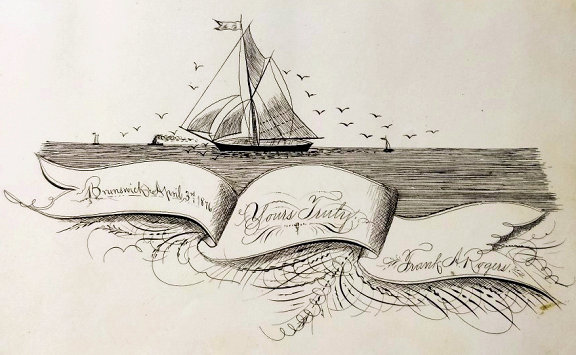 Brunswick, April, 3rd, 1876
Yours Truly,
Frank A. Rogers.